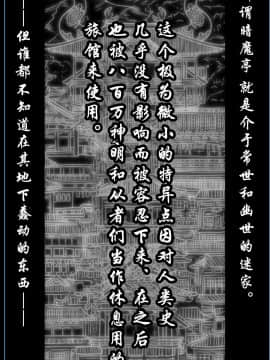 谓暗魔亭 就是介于常世和幽世的迷家。
这个极为微小的特异点因对人类史
几乎没有影响而被容忍下来、在之后
也被八百万神明和从者们当作休息用的
旅馆来使用。
——但谁都不知道在其地下蠢动的东西——